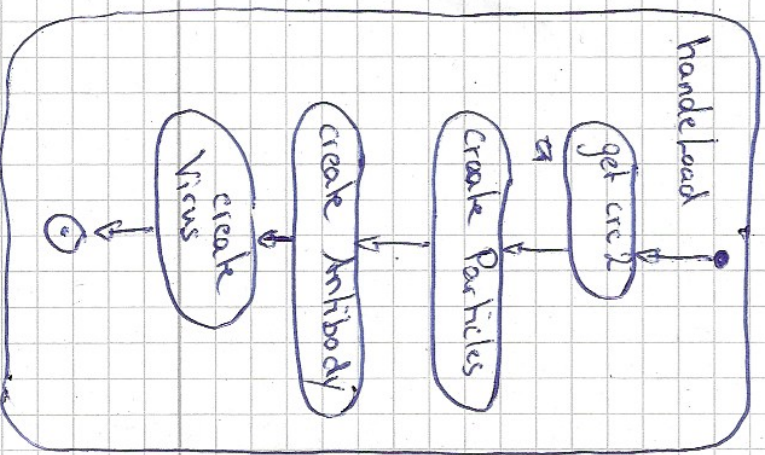 handeLoad
get crc2
Craate Particles
create Antibody
create
Virus